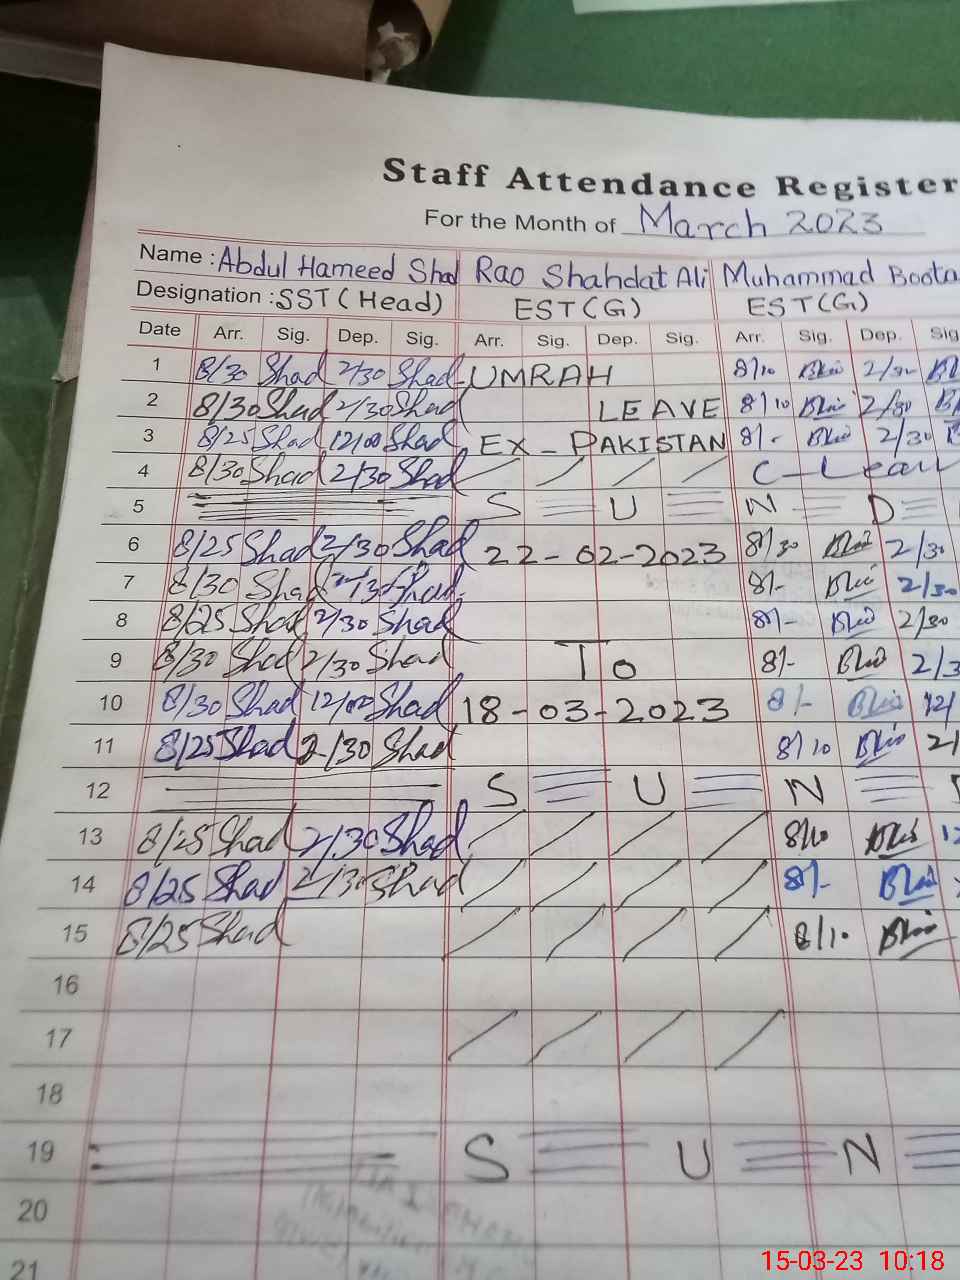 Staff Attendance Register
For the Month of March 2023
Name : Abdul Hameed Shad Rao Shahdat Ali Muhammad Boota
Designation : SST (Head) EST (G) EST (G)
Date Arr. Sig. Dep. Sig. Arr. Sig. Dep. Sig. Arr. Sig. Dep. Sig
1 8/30 Shad 2/30 Shad UMRAH 8/10 2/30
2 8/30 Shad 2/30 Shad LEAVE 8/10 2/30
3 8/25 Shad 12/00 Shad EX - PAKISTAN 8/- 2/30
4 8/30 Shad 2/30 Shad / / / / C-Leav
5 S U N D
6 8/25 Shad 2/30 Shad 22-02-2023 8/30 2/30
7 8/30 Shad 2/30 Shad 8/- 2/30
8 8/25 Shad 2/30 Shad 8/- 2/30
9 8/30 Shad 2/30 Shad To 8/- 2/3
10 8/30 Shad 12/00 Shad 18-03-2023 8/- 12/
11 8/25 Shad 2/30 Shad 8/10 2/
12 S U N
13 8/25 Shad 2/30 Shad / / / / 8/10 12
14 8/25 Shad 2/30 Shad / / / / 8/-
15 8/25 Shad / / / / 8/10
16
17 / / / /
18
19 S U N
20
21
15-03-23 10:18